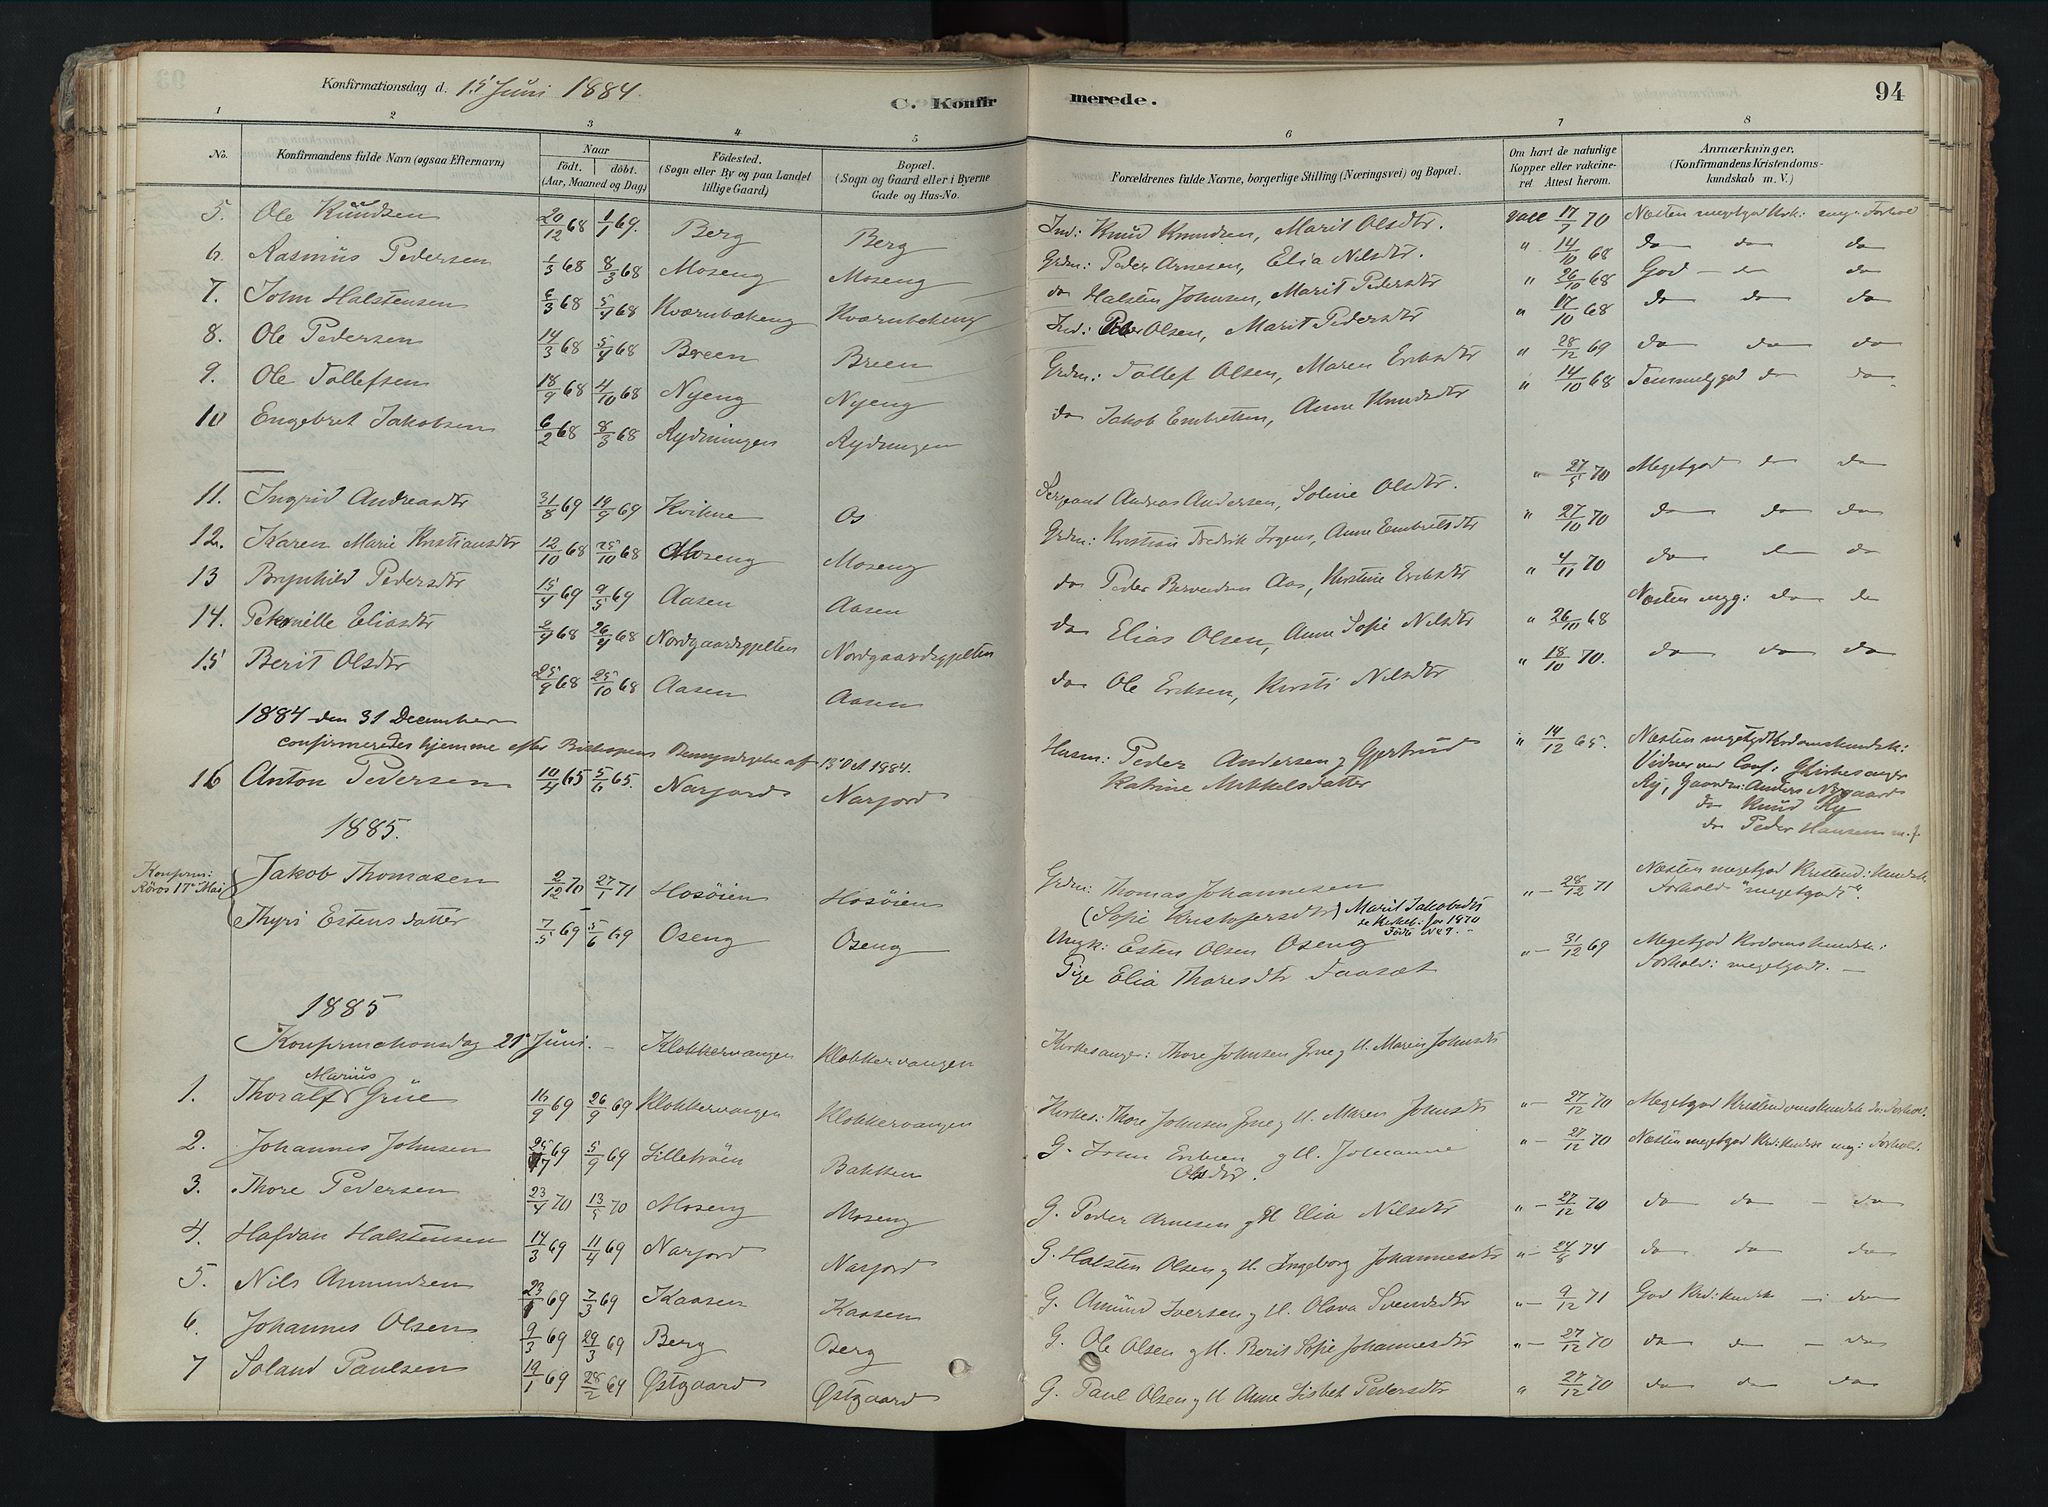 Konfirmationsdag d. 15' Juni 1884.
C. Konfirmerede.
94
1 2 3 4 5 6 7 8
No. Konfirmandens fulde Navn (ogsaa Efternavn) Naar født. døbt. (Aar, Maaned og Dag) Fødested. (Sogn eller By og paa Landet tillige Gaard) Bopæl. (Sogn og Gaard eller i Byerne Gade og Hus-No. Forældrenes fulde Navne, borgerlige Stilling (Næringsvei) og Bopæl. Om havt de naturlige Kopper eller vakcineret Attest herom. Anmærkninger. (Konfirmandens Kristendomskundskab m. V.)
5. Ole Knudsen 20/12 68 1/1 69. Berg Berg Ind: Knud Knudsen, Marit Olsdtr. vacc 17/7 70 Næsten megetgod Krk: mg: Forhold
6. Rasmus Pedersen 1/3 68 8/3 68 Moseng Moseng Grdm: Peder Arnesen, Elia Nilsdtr. " 14/10 68 do do do
7. John Halstensen 6/3 68 5/4 68 Kværnbækeng Kværnbekeng do Halsten Johnsen, Marit Pedersdtr " 26/10 68 God do do
8. Ole Pedersen 14/3 68 5/4 68 Breen Breen Ind: Peder Olsen, Marit Pedersdtr " 17/10 68 do do do
9. Ole Tollefsen 18/9 68 4/10 68 Nyeng Nyeng Grdm: Tollef Olsen, Maren Eriksdtr " 28/12 69 do do do
10 Engebret Jakobsen 6/2 68 8/3 68 Rydningen Rydningen do Jakob Embretsen, Anne Knudsdtr " 14/10 68 Temmelig god do do
11. Ingrid Andreasdtr 31/8 69 19/9 69 Kvikne Os Sergeant Andreas Andersen, Soline Olsdtr. " 27/5 70 Megetgod do do
12. Karen Marie Kristiansdtr 12/10 68 25/10 68 Moseng Moseng Grdm: Kristian Fredrik Irgens, Anne Embretsdtr " 27/10 70 do do do
13 Brynhild Pedersdtr 15/4 69 9/5 69 Aasen Aasen do Peder Aas, Kirstine Eriksdtr " 4/11 70 do do do
14. Petronelle Eliasdtr 2/4 68 26/4 68 Nordgaardsgjelten Nordgaardsgjelten do Elias Olsen, Anne Sofie Nilsdtr " 26/10 68 Næsten mg: do do
15 Berit Olsdtr 25/9 68 25/10 68 Aasen Aasen do Ole Eriksen, Kirsti Nilsdtr " 18/10 70. do do do
1884 den 31 December
confirmeredes hjemme efter Biskopens Bemyndigelse af 13' Oct 1884.
16 Anton Pedersen 10/4 65 5/6 65. Narjord Narjord Husm: Peder Andersen og Gjertrud Katrine Mikkelsdatter " 14/12 65. Næsten megetgod Kdomskundsk:
Vidner ver Conf: Kirkesanger
Ry, Gaardm: Anders Nygaard
do Knud Ry
do Peder Hansen m. f.
1885.
Konfirm: Røros 17' Mai
Jakob Thomasen 2/12 70 27/1 71 Hosøien Hosøien Grdm: Thomas Johannesen (Sofie Kristofersdtr) Marit Jakobsdtr se Kirkeb: for 1870 Fødte No 9. " - 28/12 71 Næsten megetgod Kristend: kundsk. Forhold "megetgodt".
Thyri Estensdatter 7/5 69 5/6 69 Oseng Oseng Ungk: Esten Olsen Oseng Pige Elia Thoresdtr Faaset " - 31/12 69 Megetgod Krdomskundsk: Forhold: megetgodt. -
1885
Konfirmationsdag 21' Juni. - Klokkervangen Klokkervangen Kirkesanger: Thore Johnsen Grue og H. Maren Johnsdtr
1. Thoralf Marius Grue 16/9 69 26/9 69 Klokkervangen Klokkervangen Kirkes: Thore Johnsen Grue og H. Maren Johnsdtr " - 27/12 70 Megetgod Kristendomskundsk do: Forhold.
2. Johannes Johnsen 25/7 69 5/9 69 Lilletrøen Bakken G. John Eriksen og H. Johanne Olsdtr. " - 27/12 70 Næsten megetgod Krd: kundsk mg: Forhold.
3. Thore Pedersen 23/4 70 13/5 70 Moseng Moseng G. Peder Arnesen og H Elia Nilsdtr " - 27/12 70 do do - do
4. Hafdan Halstensen 14/3 69 11/4 69 Narjord Narjord G. Halsten Olsen og H. Ingeborg Johannesdtr " - 24/8 74 do do do
5. Nils Amundsen 23/1 69 7/3 69 Kaasen Kaasen G. Amund Iversen og H. Olava Svendsdtr " - 9/12 71 God Krd: kundsk - do
6. Johannes Olsen 9/3 69 29/3 69 Berg Berg G. Ole Olsen og H. Berit Sofie Johannesdtr " - 27/12 70 do do - do
7 Soland Paulsen 19/1 69 28/2 69 Østgaard Østgaard G. Paul Olsen og H Anne Lisbet Pedersdtr " 27/12 70 do do do